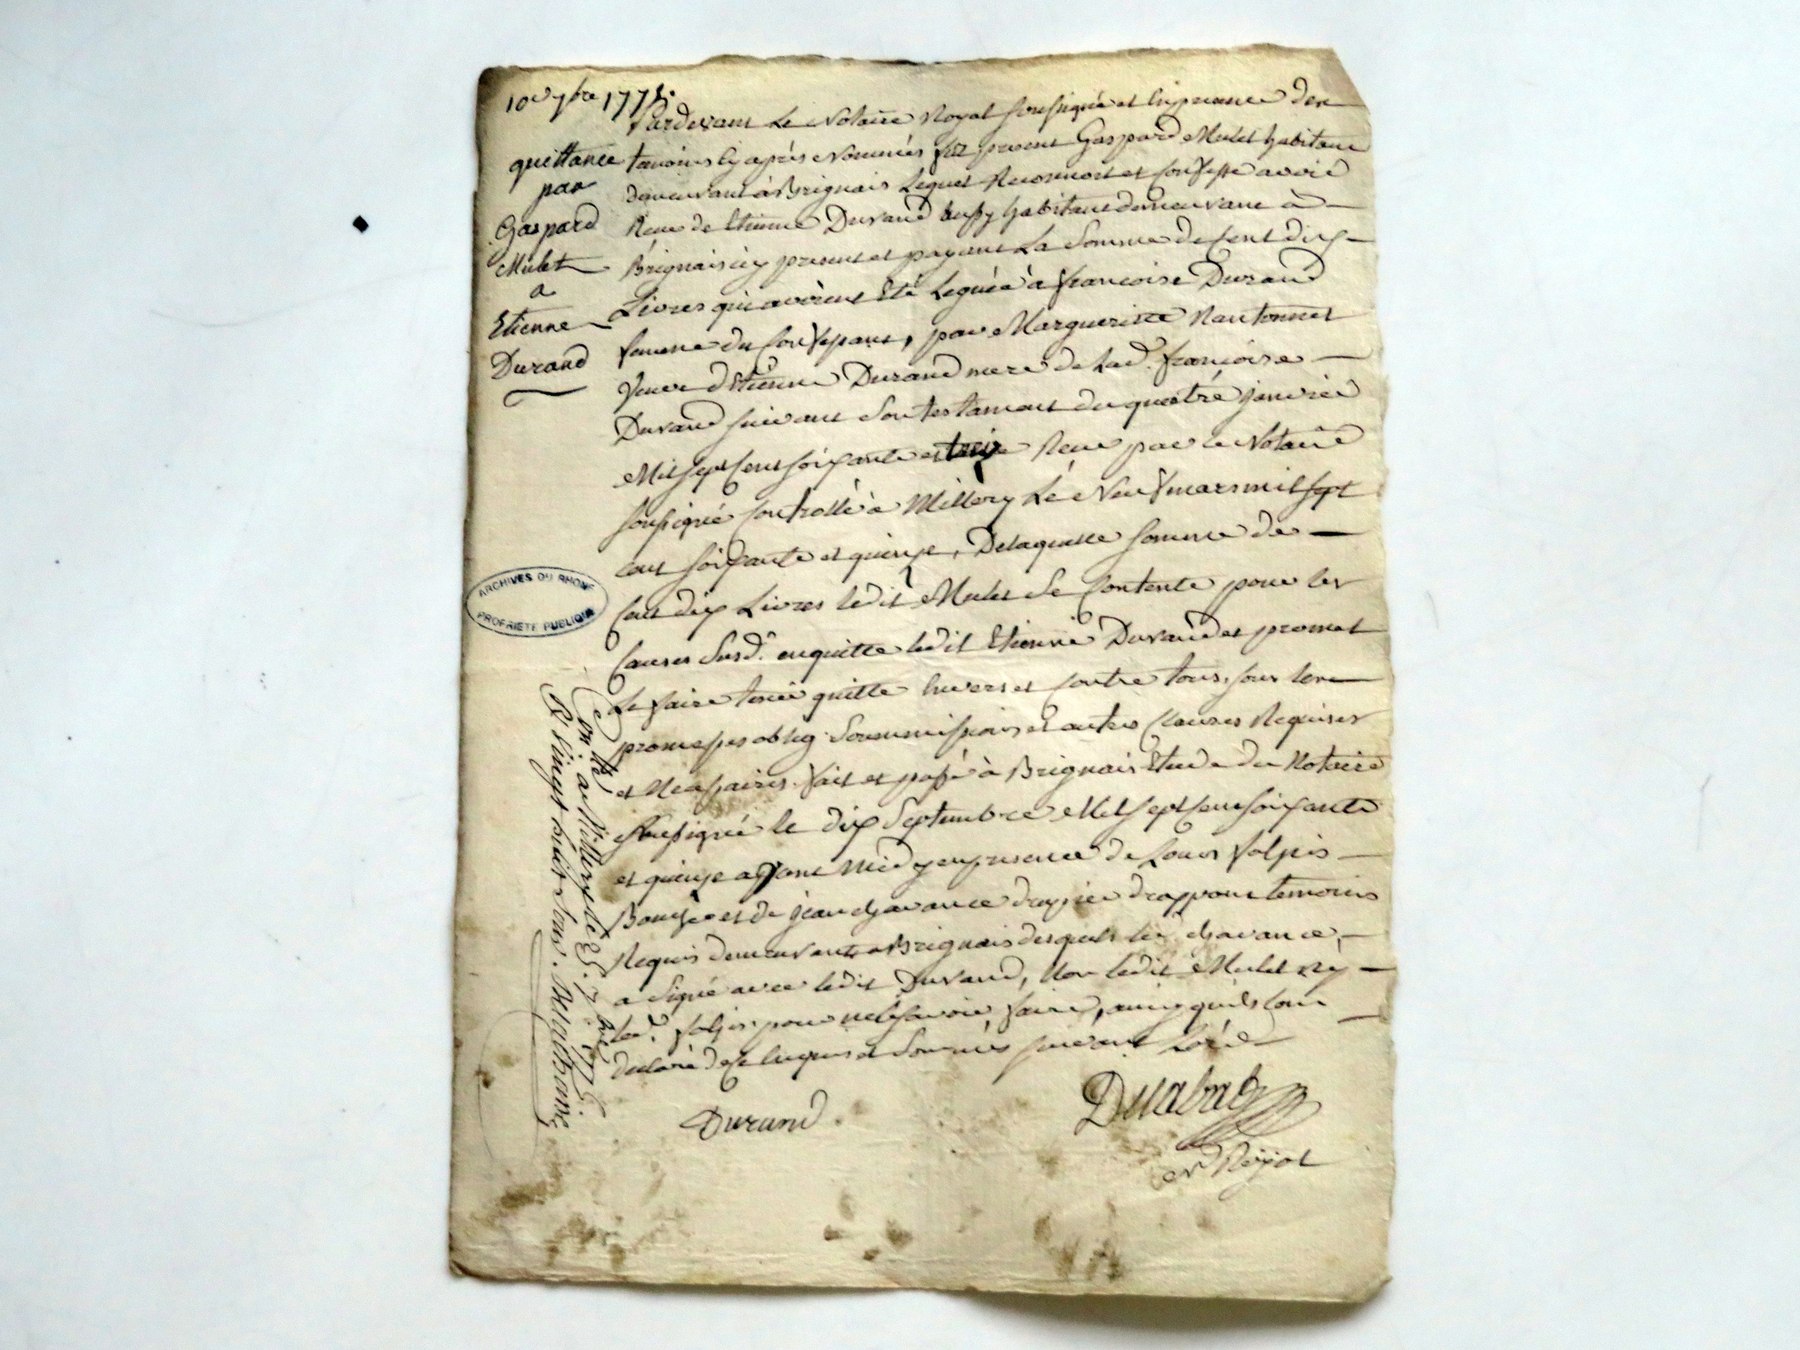 10e 7bre 1775.
quittance
par
Gaspard
Mulet
a
Etienne
Durand
Pardevant Le Notaire Royal soussigné et En presence des
temoins cy après Nommés fut present Gaspard Mulet habitant
demeurant à Brignais Lequel Reconnoit et Confesse avoir
Reçu de Etienne Durand aussy habitant demeurant à
Brignais icy present et payant La Somme de Cent dix
Livres qui avoient Eté Leguée à françoise Durand
femme du Confessant, par Margueritte Nantonnet
Veuve d'Etienne Durand mere de Lad. françoise
Durand suivant son testament du quatre janvier
Mil sept Cent soixante et treize Reçu par le Notaire
soussigné Controllé à Millery Le Neuf mars mil sept
cent soixante et quinze, De laquelle somme de
Cent dix Livres ledit Mulet Se Contente pour les
Causes Susd. en quitte ledit Etienne Durand et promet
Le faire tenir quitte Envers et Contre tous, sous les
promesses oblig. Soummissions et autres Clauses Requises
et Necessaires. fait et passé à Brignais Etude du Notaire
soussigné le dix Septembre Mil sept Cent soixante
et quinze avant Midy en presence de Louis
et de jean Chavance drap pour temoins
Requis demeurants a Brignais desquels led. Chavance,
a Signé avec ledit Durand, Non ledit Mulet Ny
led. pour ne Sçavoir faire, ainsy qu'ils l'ont
declaré de ce Enquis et Sommés suivant L'ord.
Durand.
Delabal
Nre Royal
Con.lé a Millery le 25. 7bre 1775.
R. vingt huit sous.
ARCHIVES DU RHONE
PROPRIETE PUBLIQUE